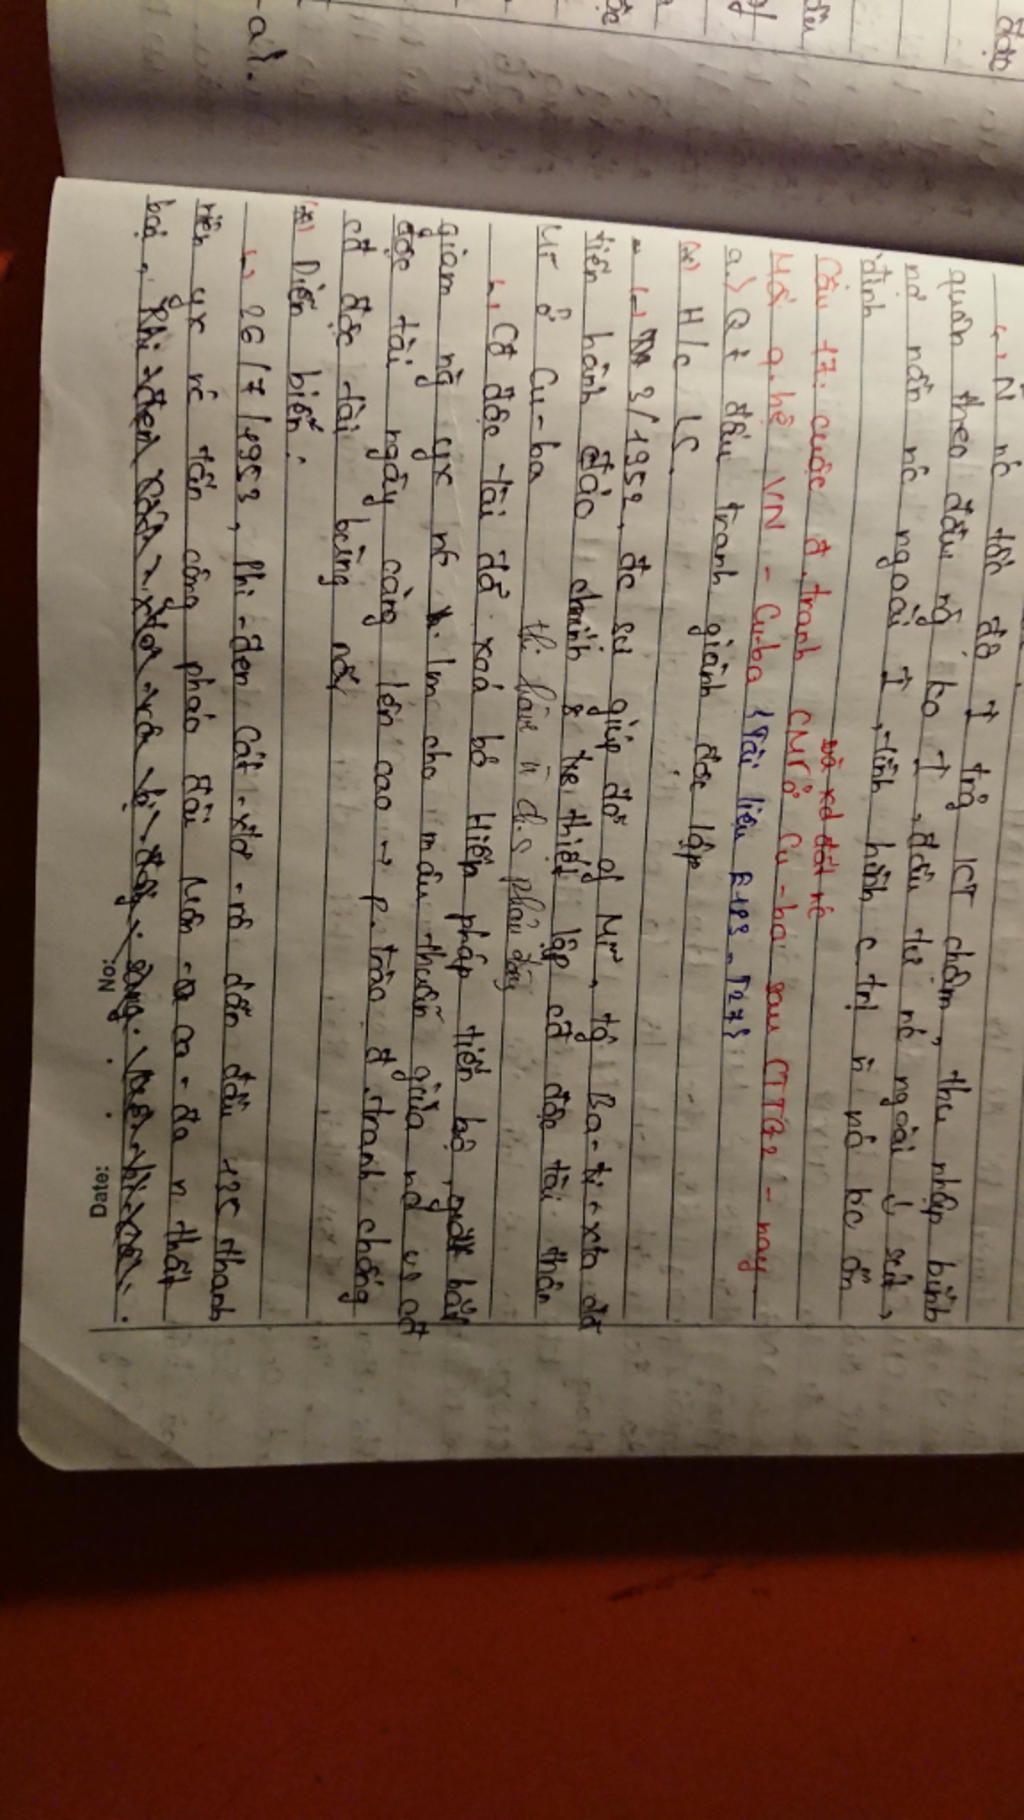 ↳ Ñ nc tốc độ ↑ trg KT chậm, thu nhập bình
quân theo đầu ng ko ↑, đầu tư nc ngoài ↓ sút,
nợ nần nc ngoài ↑, tình hình c trị ñ nc ko ổn
định
và xd đất nc
Câu 17: cuộc đ.tranh CM ở Cu-ba sau CTTG2 - nay.
Mối q.hệ VN - Cu-ba {Tài liệu E183 - T27}
a.) Qt đấu tranh giành độc lập
(*) H/c LS.
- ↳ 3/1952, đc sự giúp đỡ of Mĩ, tg Ba-ti-xta đã
tiến hành đảo chính & thiết lập cđ độc tài thân
Mĩ ở Cu-ba
thi hành ñ c.s phản động
↳ Cđ độc tài đã xoá bỏ Hiến pháp tiến bộ, bắt
giam ng yx nc làm cho mâu thuẫn giữa nd vs cđ
độc tài ngày càng lên cao → p.trào đ.tranh chống
cđ độc tài bùng nổ
(*) Diễn biến:
↳ 26/7/1953, Phi-đen Cát-xtơ-rô dẫn đầu 135 thanh
niên yx nc tấn công pháo đài Môn-ca-đa n thất
bại,
No:
Date:
al.